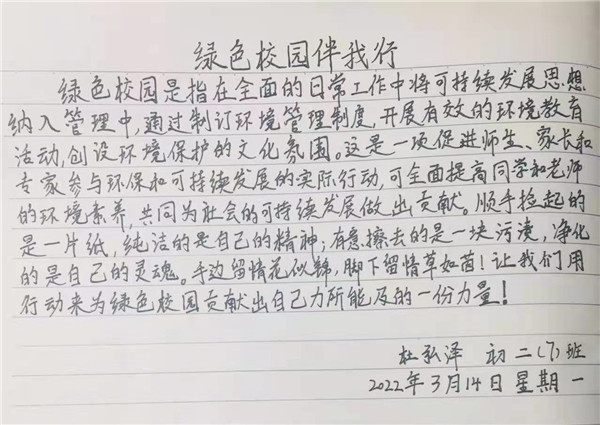 绿色校园伴我行
绿色校园是指在全面的日常工作中将可持续发展思想
纳入管理中,通过制订环境管理制度,开展有效的环境教育
活动,创设环境保护的文化氛围。这是一项促进师生、家长和
专家参与环保和可持续发展的实际行动,可全面提高同学和老师
的环境素养,共同为社会的可持续发展做出贡献。顺手捡起的
是一片纸,纯洁的是自己的精神;有意擦去的是一块污渍,净化
的是自己的灵魂。手边留情花似锦,脚下留情草如茵!让我们用
行动来为绿色校园贡献出自己力所能及的一份力量!
杜弘泽 初二(7)班
2022年3月14日星期一